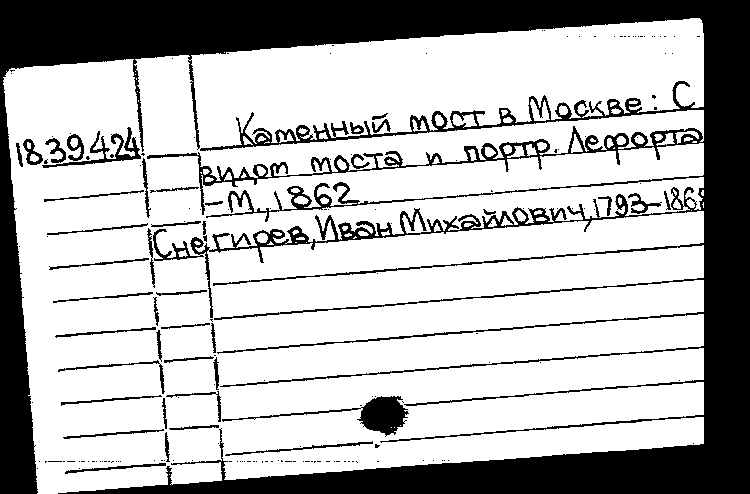 Каменный мост в Москве: С
18.39.4.24
видом моста и портр. Лефорта
-М., 1862.
Снегирев, Иван Михайлович, 1793-1868